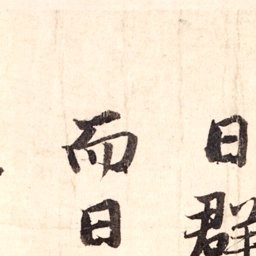 日群
而日